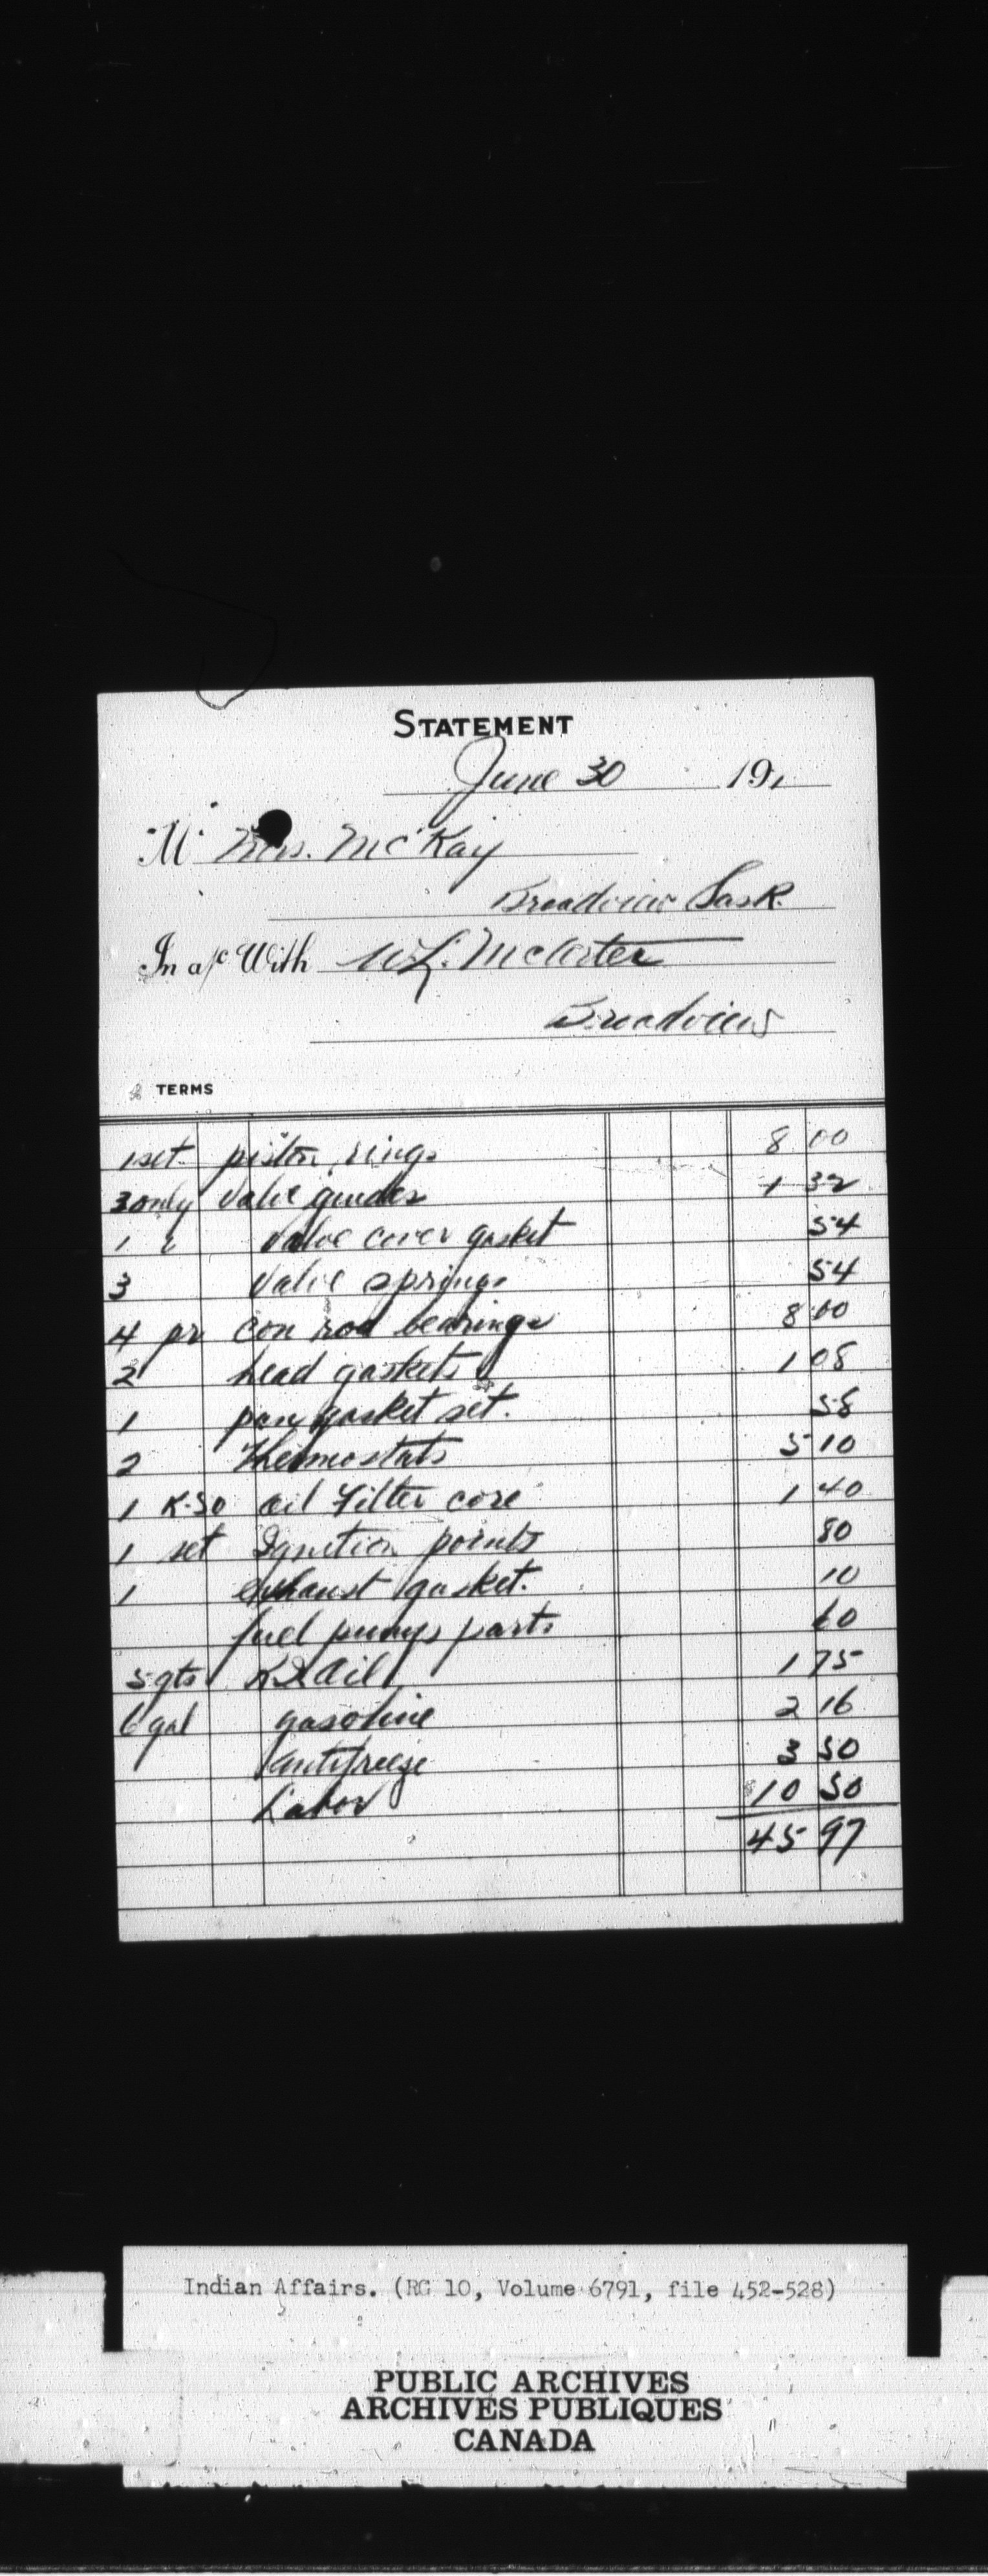 STATEMENT
June 30 191
M Mrs. McKay
Broadview Sask.
In a/c With W.L. McArter
Broadview
TERMS
1 set piston rings 8 00
3 only valve guides 1 32
1 " valve cover gasket 54
3 valve springs 54
4 pr con rod bearings 8 00
2 head gaskets 1 08
1 pan gasket set. 58
2 Thermostats 5 10
1 K-30 oil Filter core 1 40
1 set Ignition points 80
1 exhaust gasket. 10
fuel pump parts 60
5 qts Oil 1 75
6 gal gasoline 2 16
antifreeze 3 50
Labor 10 50
45 97
Indian Affairs. (RG 10, Volume 6791, file 452-528)
PUBLIC ARCHIVES
ARCHIVES PUBLIQUES
CANADA